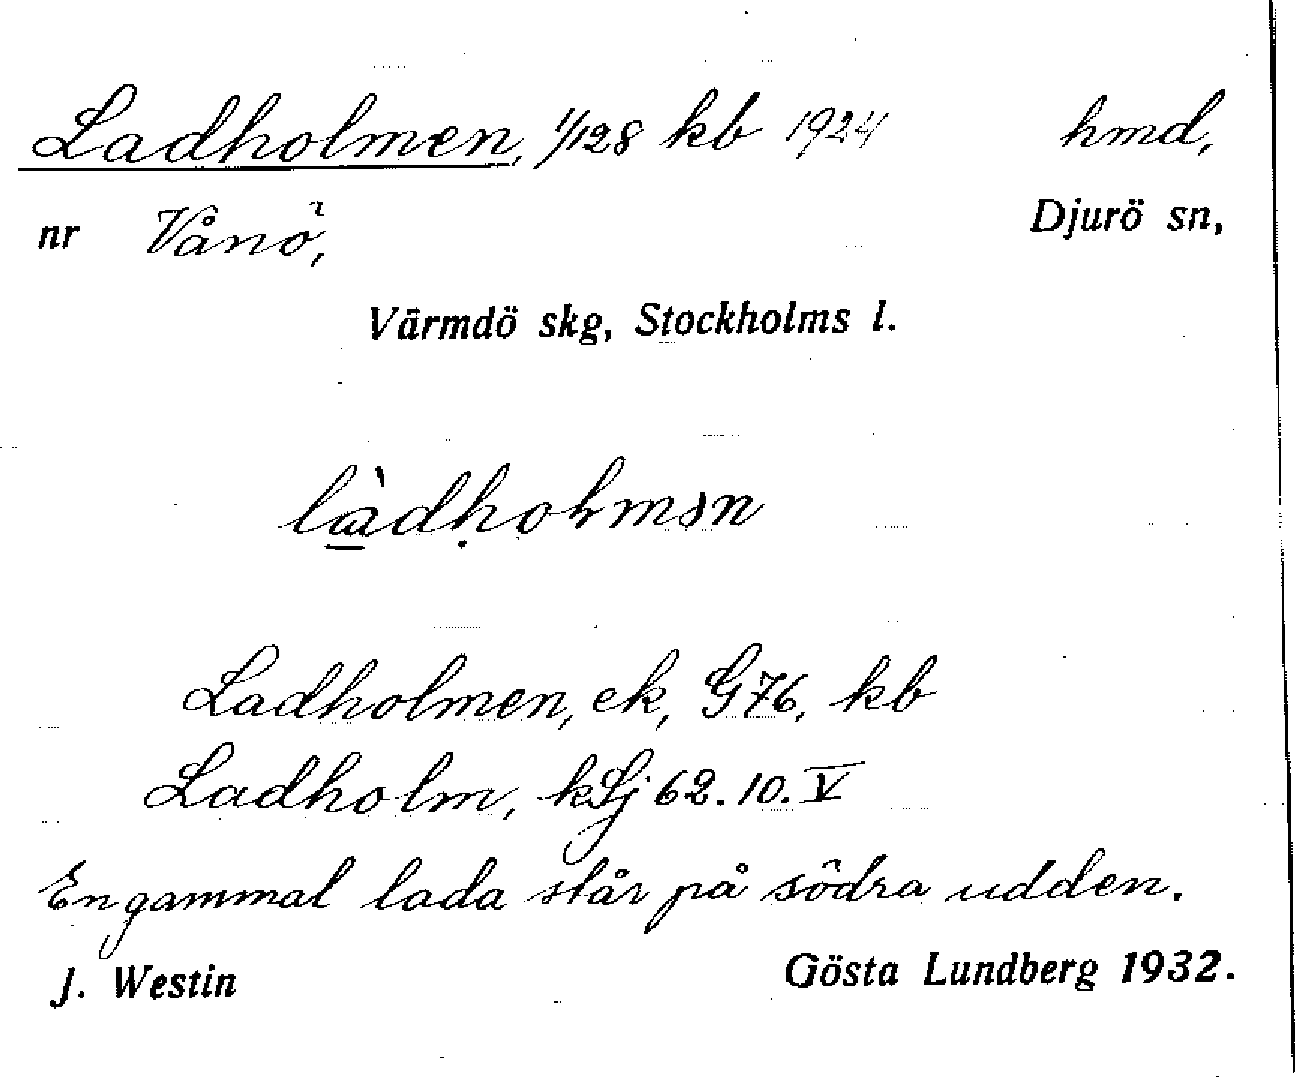 Ladholmen, 1/128 kb 1924 hmd,
nr Vånö, Djurö sn,
Värmdö skg, Stockholms l.
làdḥoɫmən
Ladholmen, ek, G76, kb
Ladholm, kSj 62.10.V
En gammal lada står på södra udden.
J. Westin Gösta Lundberg 1932.